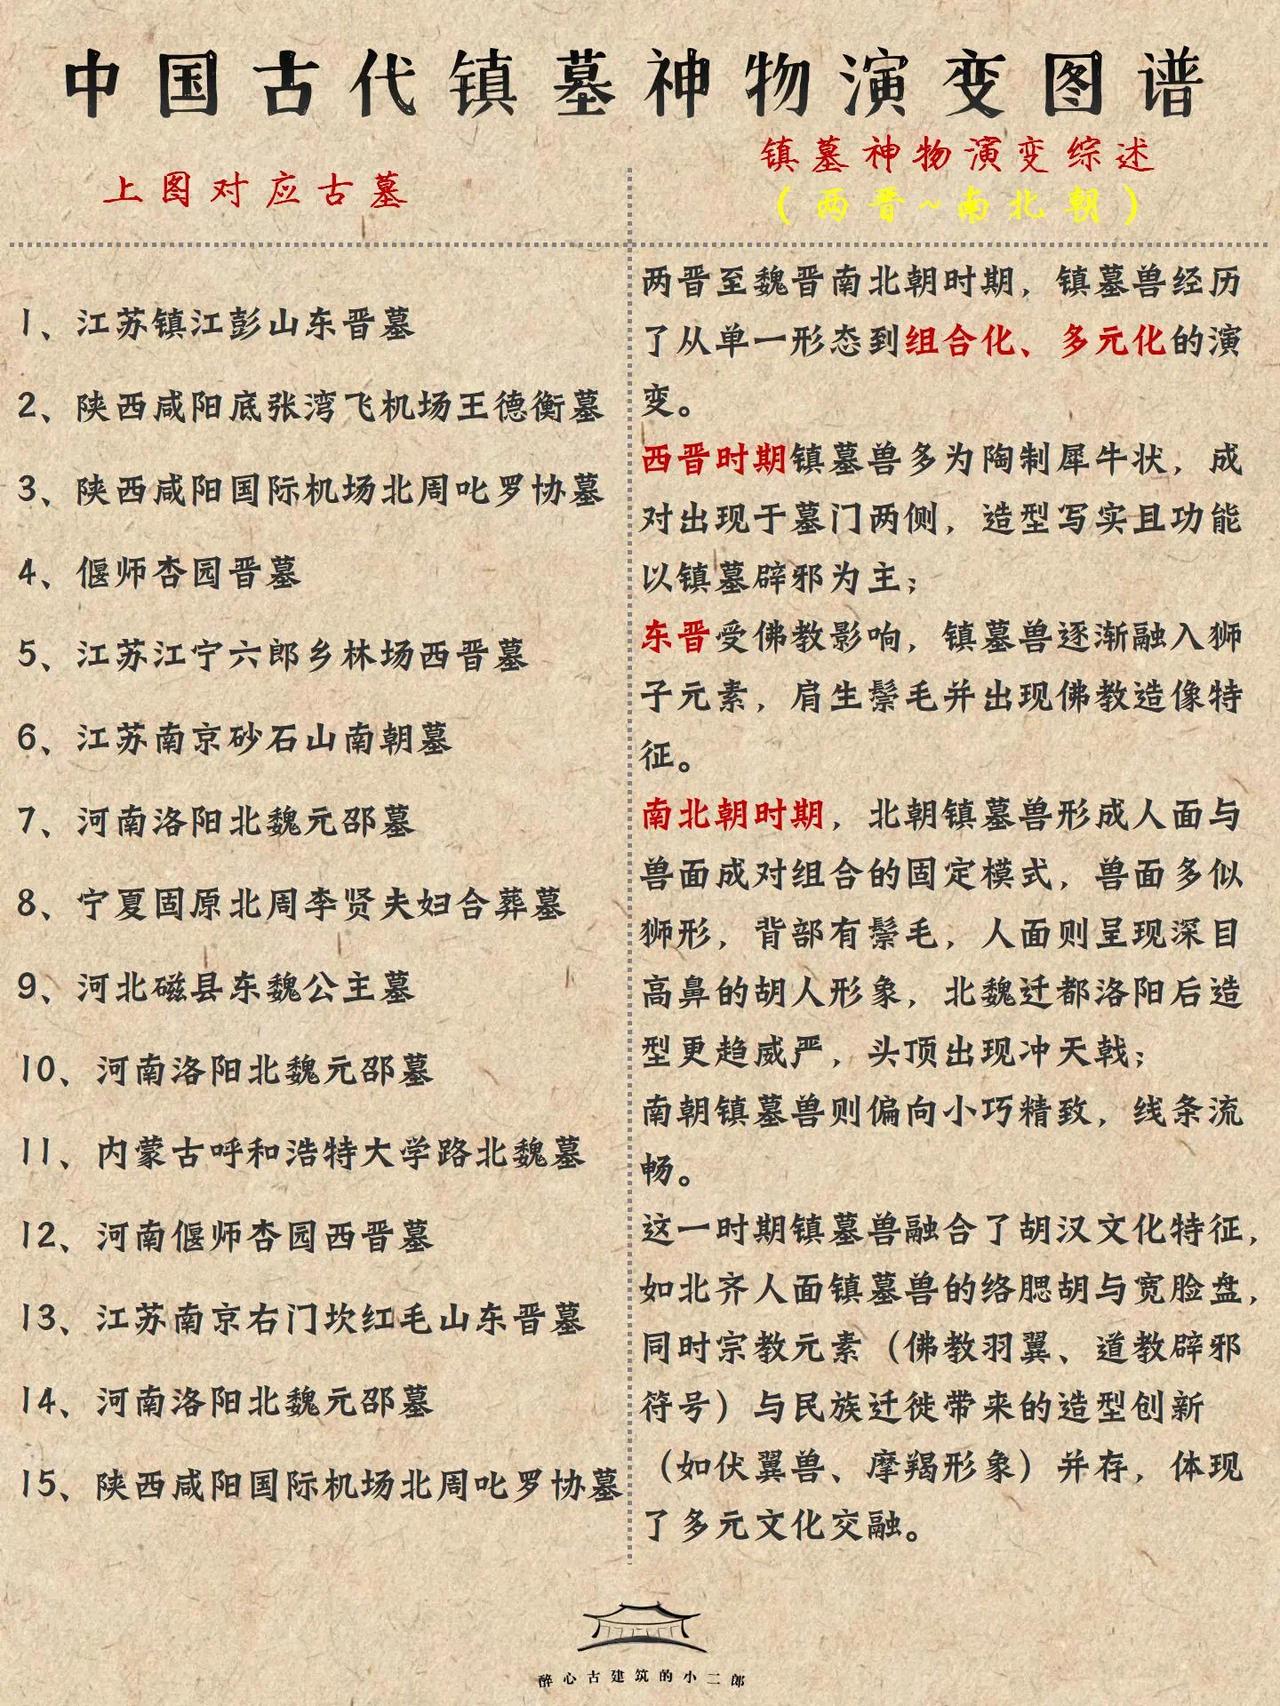 中国古代镇墓神物演变图谱
上图对应古墓
1、江苏镇江彭山东晋墓
2、陕西咸阳底张湾飞机场王德衡墓
3、陕西咸阳国际机场北周叱罗协墓
4、偃师杏园晋墓
5、江苏江宁六郎乡林场西晋墓
6、江苏南京砂石山南朝墓
7、河南洛阳北魏元邵墓
8、宁夏固原北周李贤夫妇合葬墓
9、河北磁县东魏公主墓
10、河南洛阳北魏元邵墓
11、内蒙古呼和浩特大学路北魏墓
12、河南偃师杏园西晋墓
13、江苏南京右门坎红毛山东晋墓
14、河南洛阳北魏元邵墓
15、陕西咸阳国际机场北周叱罗协墓
镇墓神物演变综述
(两晋~南北朝)
两晋至魏晋南北朝时期，镇墓兽经历
了从单一形态到组合化、多元化的演
变。
西晋时期镇墓兽多为陶制犀牛状，成
对出现于墓门两侧，造型写实且功能
以镇墓辟邪为主；
东晋受佛教影响，镇墓兽逐渐融入狮
子元素，肩生鬃毛并出现佛教造像特
征。
南北朝时期，北朝镇墓兽形成人面与
兽面成对组合的固定模式，兽面多似
狮形，背部有鬃毛，人面则呈现深目
高鼻的胡人形象，北魏迁都洛阳后造
型更趋威严，头顶出现冲天戟；
南朝镇墓兽则偏向小巧精致，线条流
畅。
这一时期镇墓兽融合了胡汉文化特征，
如北齐人面镇墓兽的络腮胡与宽脸盘，
同时宗教元素（佛教羽翼、道教辟邪
符号）与民族迁徙带来的造型创新
（如伏翼兽、摩羯形象）并存，体现
了多元文化交融。
醉心古建筑的小二郎